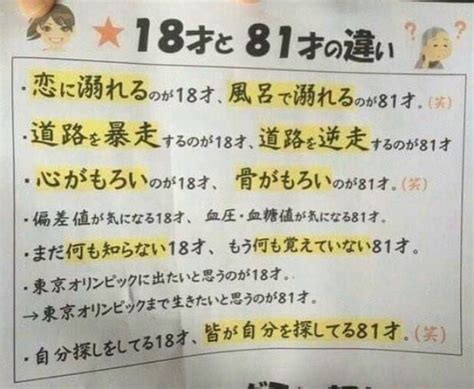 ★18才と81才の違い
・恋に溺れるのが18才、風呂で溺れるのが81才。(笑)
・道路を暴走するのが18才、道路を逆走するのが81才
・心がもろいのが18才、骨がもろいのが81才。(笑)
・偏差値が気になる18才、血圧・血糖値が気になる81才。
・まだ何も知らない18才、もう何も覚えていない81才。
・東京オリンピックに出たいと思うのが18才。
→東京オリンピックまで生きたいと思うのが81才。
・自分探しをしてる18才、皆が自分を探してる81才。(笑)